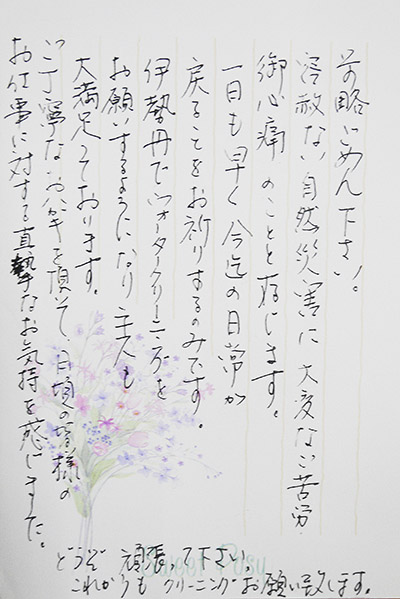 前略ごめん下さい。
容赦ない自然災害に大変なご苦労
御心痛のことと存じます。
一日も早く今迄の日常が
戻ることをお祈りするのみです。
伊勢丹でウォータークリーニングを
お願いするようになり主人も
大満足しております。
ご丁寧なおハガキを頂いて、日頃の皆様の
お仕事に対する真摯なお気持を感じました。
どうぞ頑張って下さい。
これからもクリーニングお願い致します。
Sweet Posy